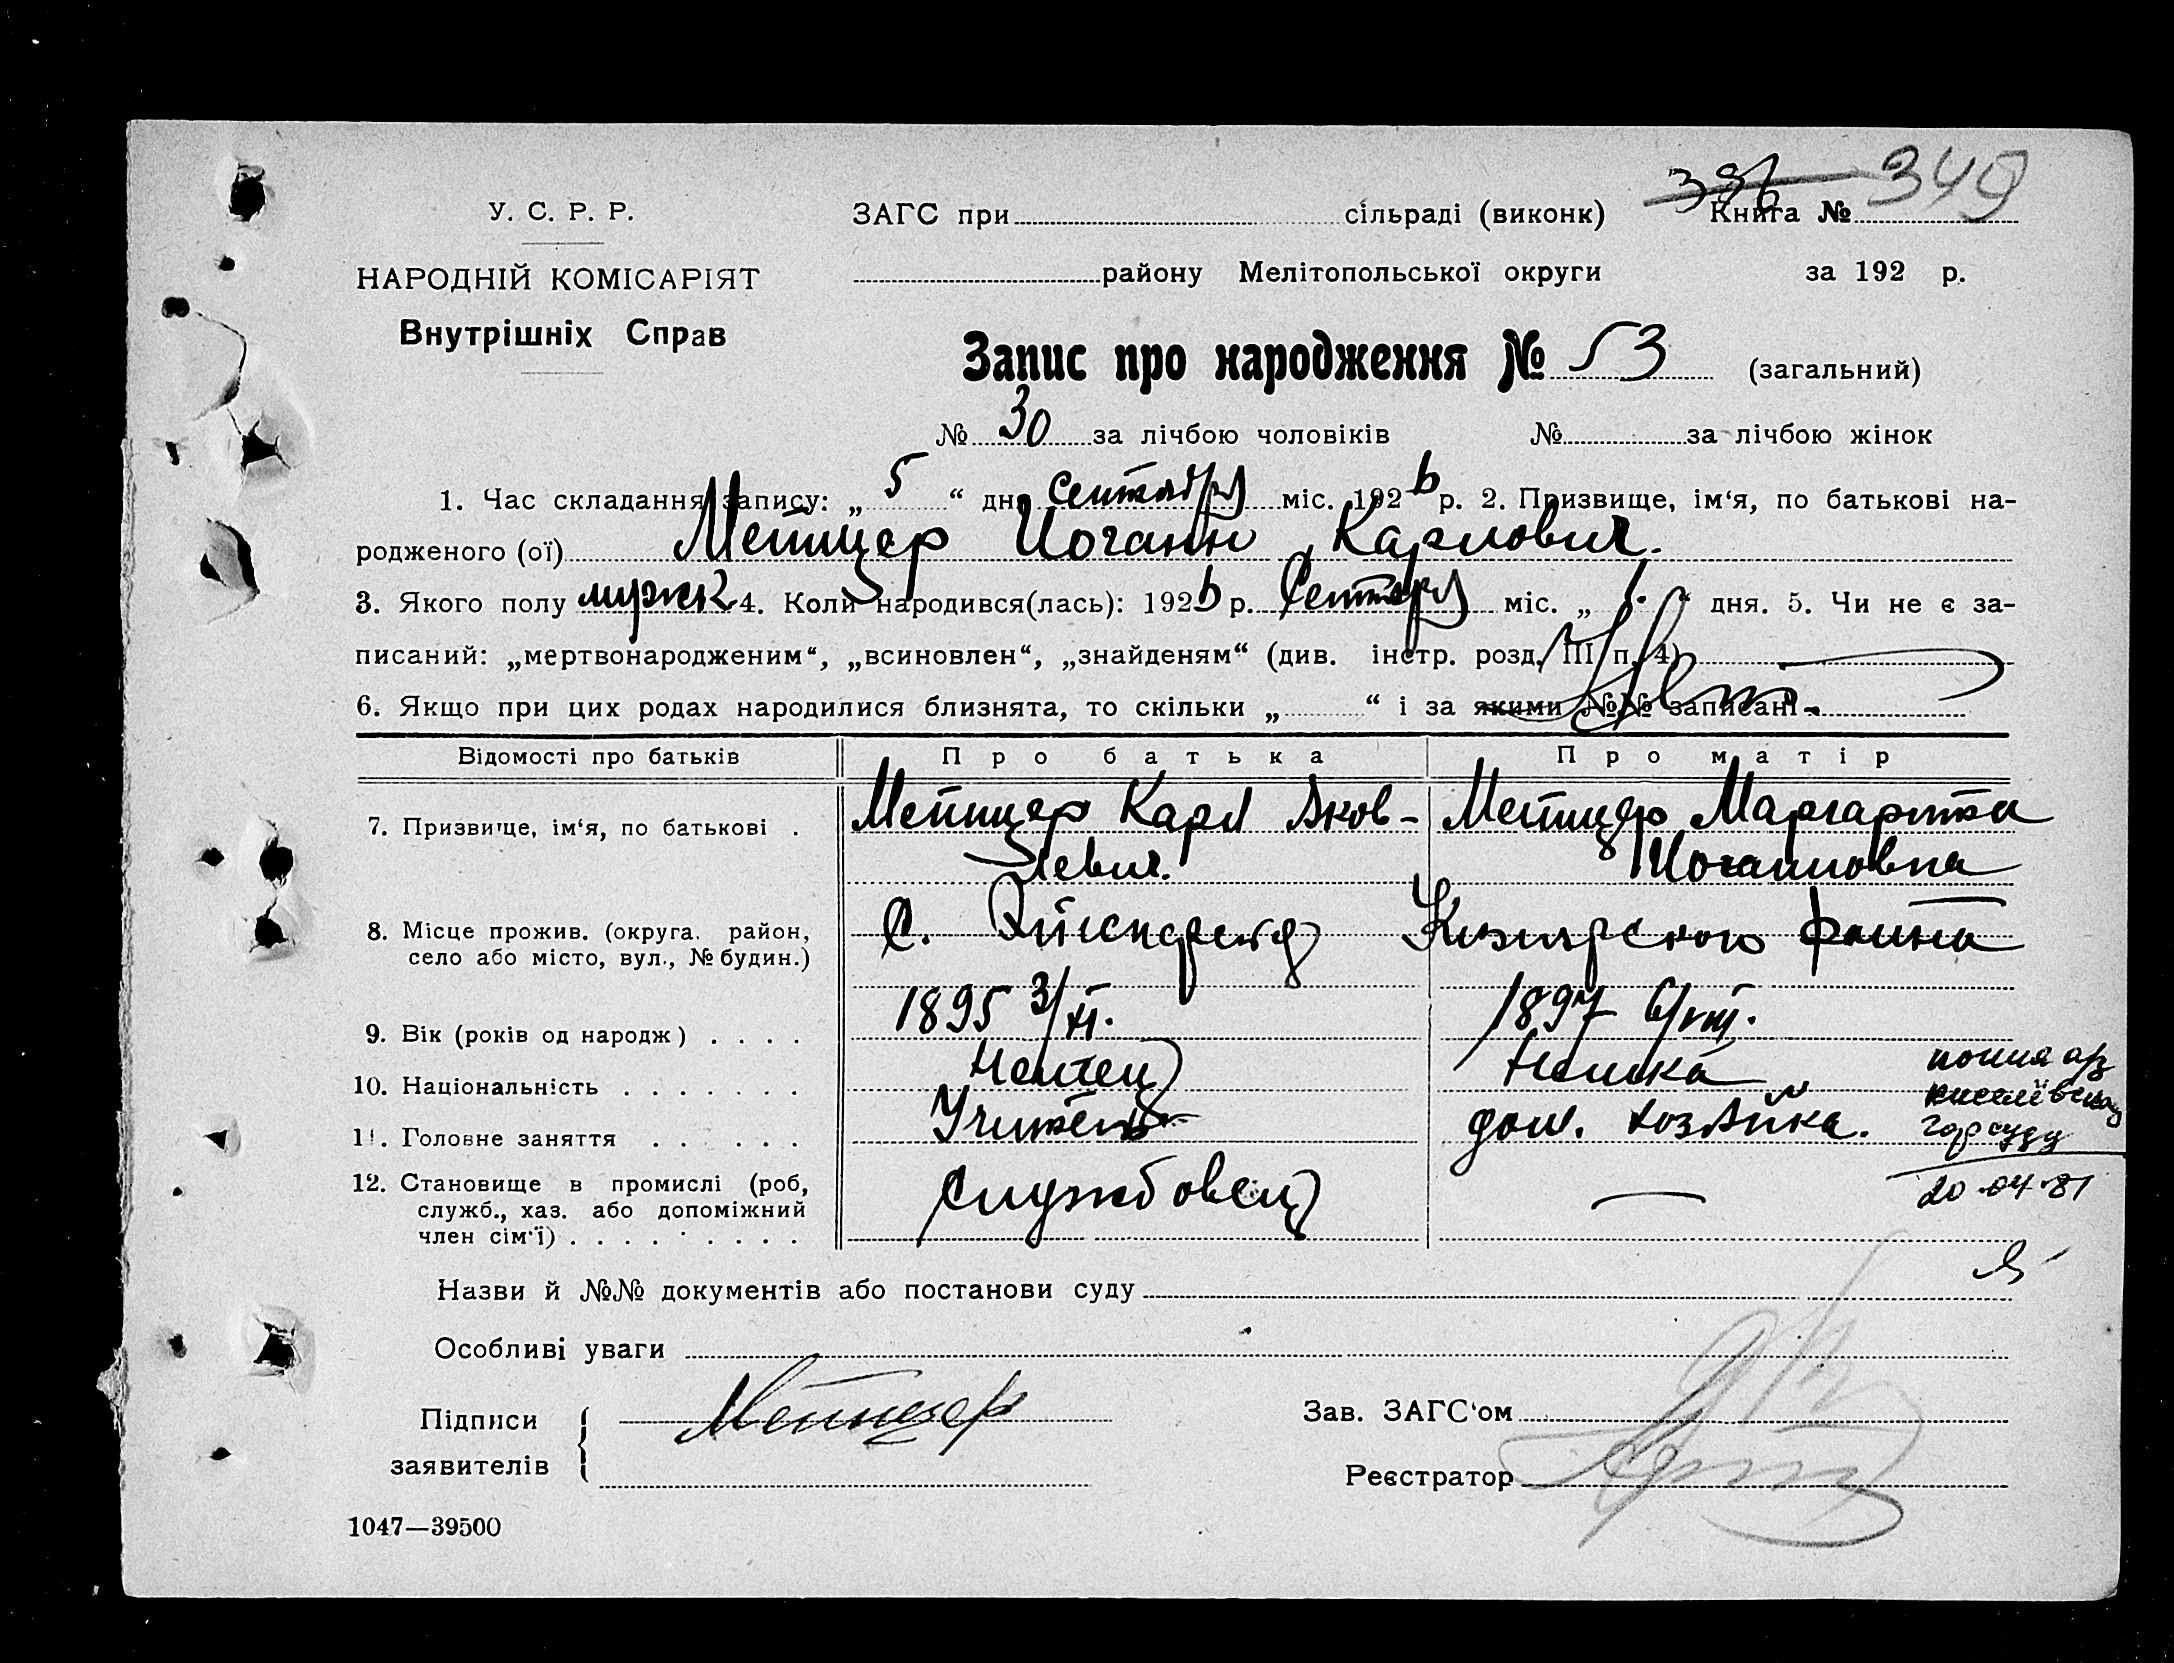 396 349
У. С. Р. Р.
ЗАГС при сільраді (виконк) Книга №
НАРОДНІЙ КОМІСАРІЯТ
району Мелітопольської округи за 192 р.
Внутрішніх Справ
Запис про народження № 53 (загальний)
№ 30 за лічбою чоловіків № за лічбою жінок
1. Час складання запису: „ 5 “ дня Сентября міс. 1926 р. 2. Призвище, ім‘я, по батькові на-
родженого (ої) Метцер Иоганн Карлович.
3. Якого полу мужск 4. Коли народився(лась): 1926 р. Сентября міс. „ 1. “ дня. 5. Чи не є за-
писаний: „мертвонародженим“, „всиновлен“, „знайденям“ (див. інстр. розд. III п. 4)
6. Якщо при цих родах народилися близнята, то скільки „ “ і за якими №№ записані
Відомості про батьків Про батька Про матір
7. Призвище, ім‘я, по батькові . Метцер Карл Яков- Метцер Маргарита
левич. Иогановна
8. Місце прожив. (округа. район, С. Кизиярского района
село або місто, вул., № будин.)
9. Вік (років од народж) . . . . 1895 3/XI. 1897 6/VIII.
10. Національність . . . . . . . Немец Немка
11. Головне заняття . . . . . . Учитель дом. хозяйка.
горсуду
12. Становище в промислі (роб, службовец —
служб., хаз. або допоміжний
член сім‘ї) . . . . . . . . .
20.04.81
Назви й №№ документів або постанови суду
Особливі уваги
Підписи Метцер
Зав. ЗАГС‘ом
заявителів
Реєстратор
1047—39500